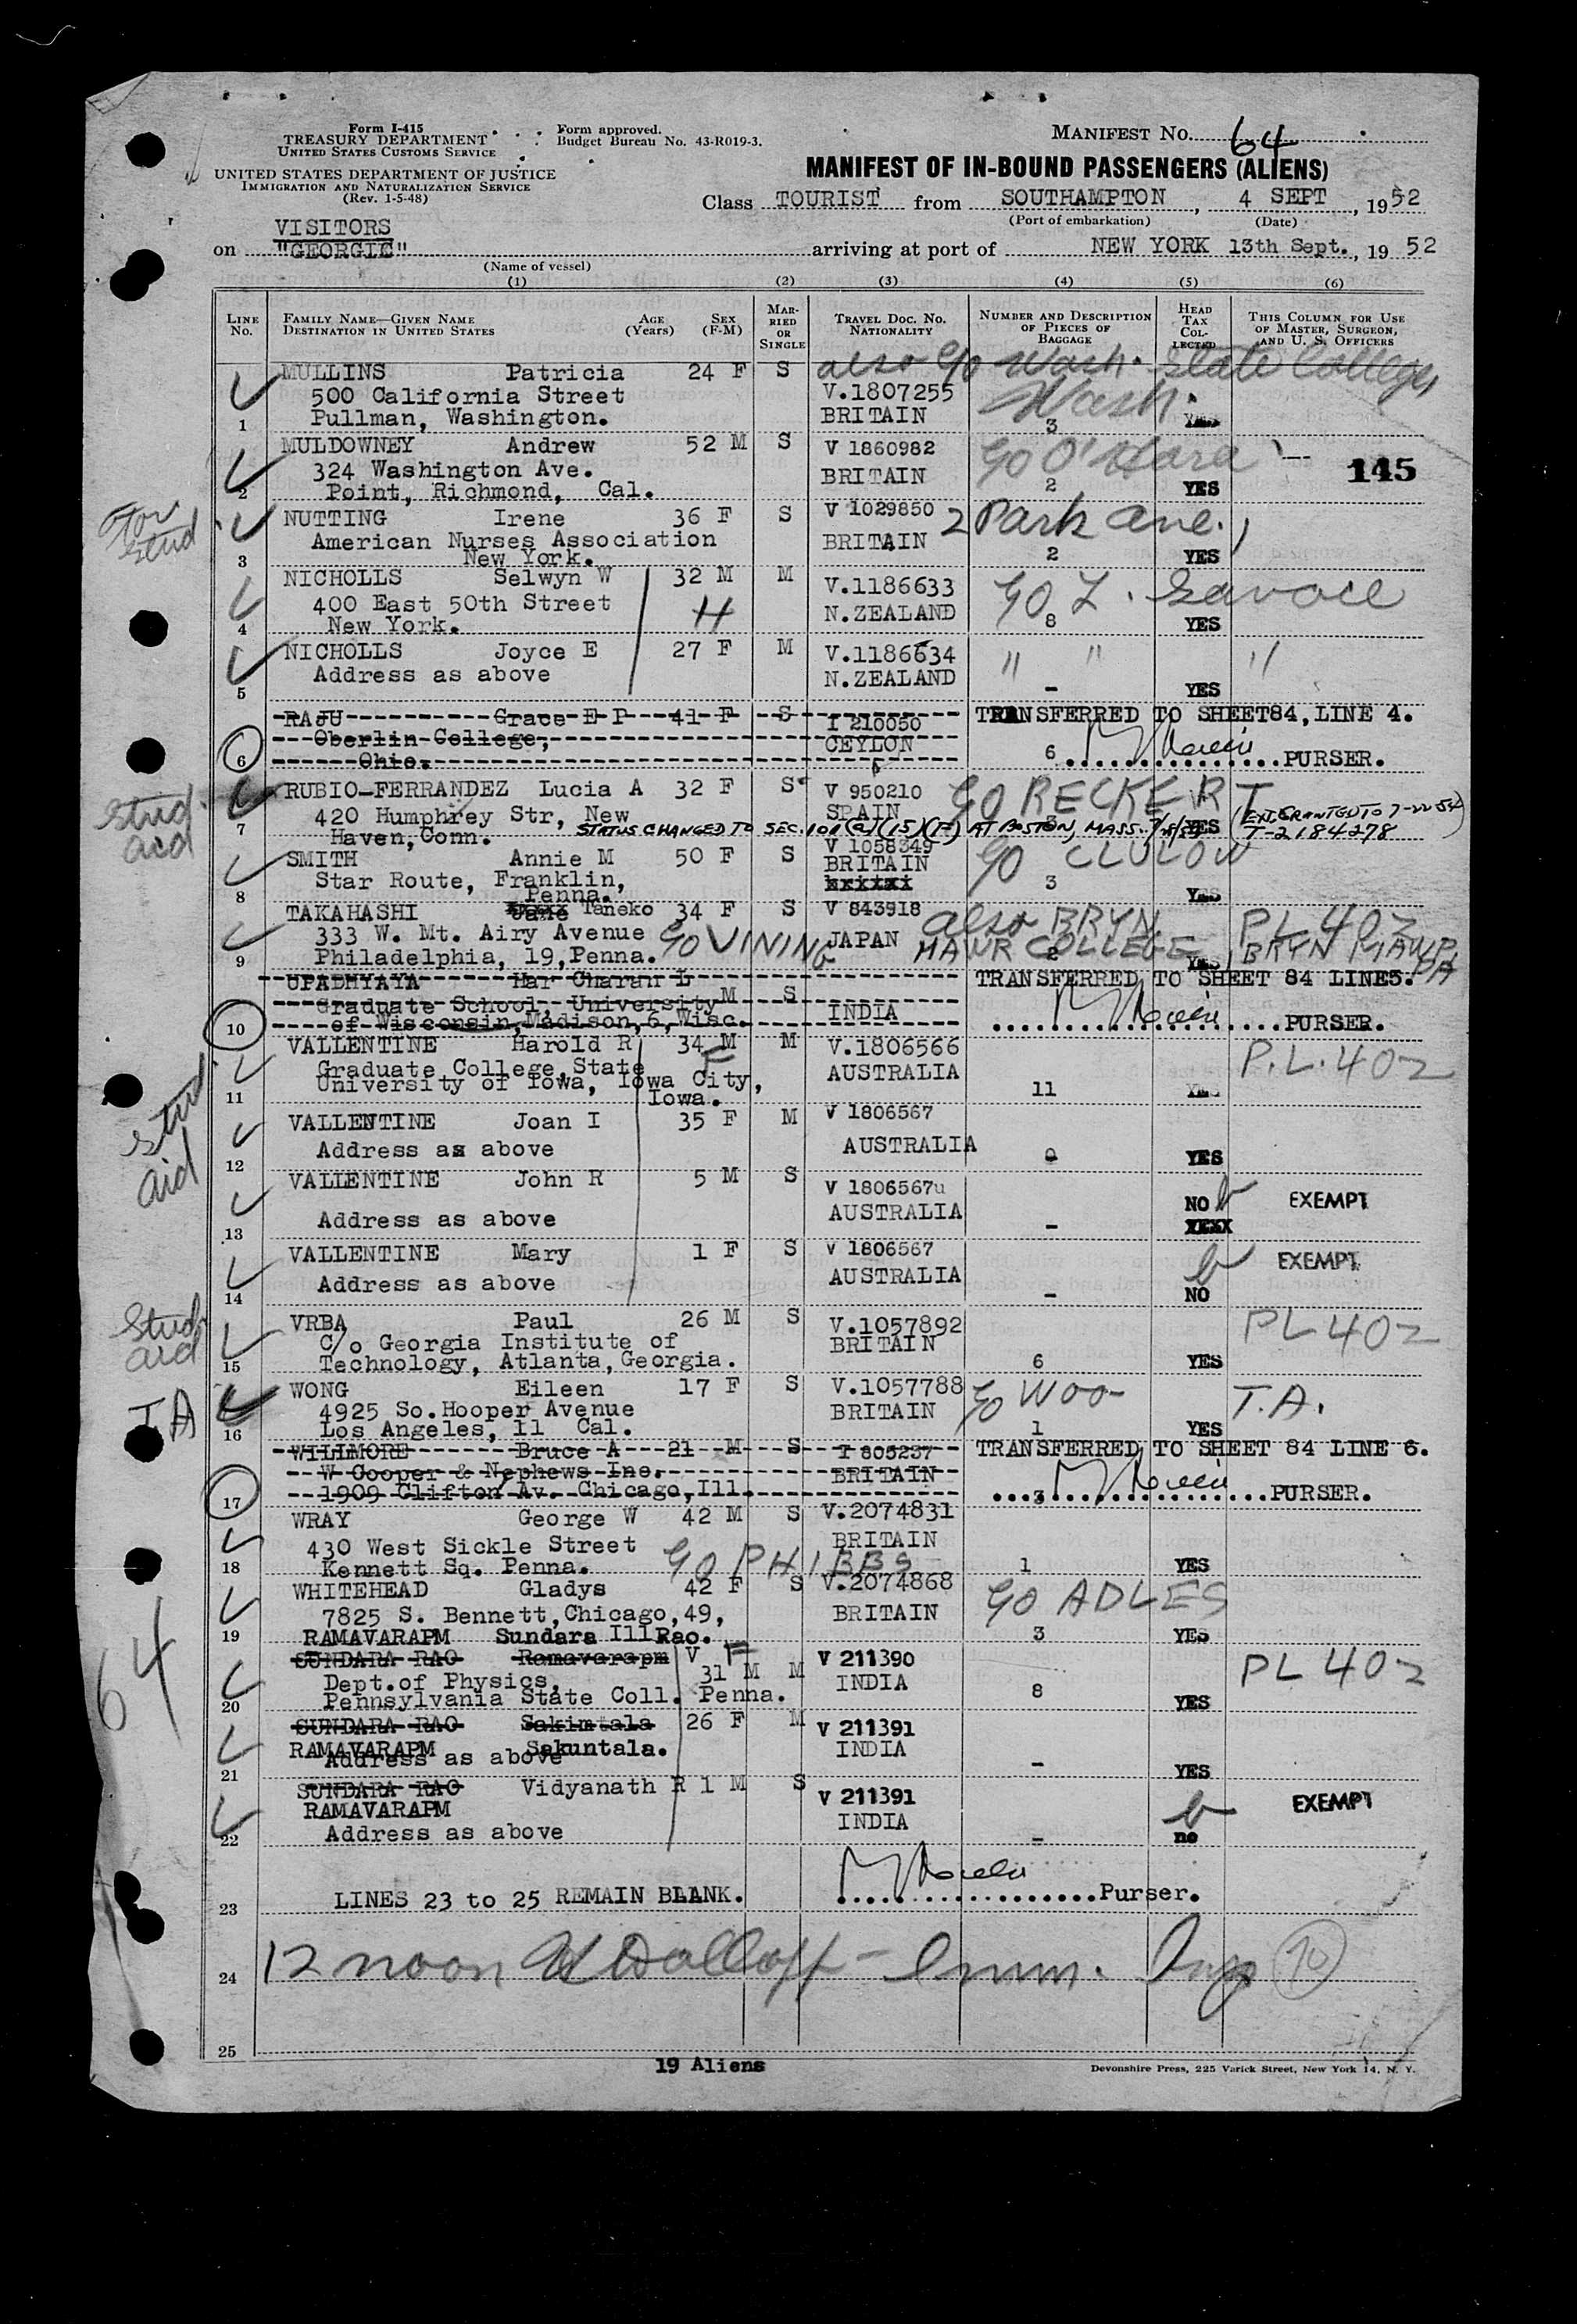 Form I-415
TREASURY DEPARTMENT
UNITED STATES CUSTOMS SERVICE
UNITED STATES DEPARTMENT OF JUSTICE
IMMIGRATION AND NATURALIZATION SERVICE
(Rev. 1-5-48)
Form approved.
Budget Bureau No. 43-R019-3.
MANIFEST No. 64
MANIFEST OF IN-BOUND PASSENGERS (ALIENS)
Class TOURIST from SOUTHAMPTON, 4 SEPT, 1952
(Port of embarkation) (Date)
VISITORS
on "GEORGIC" arriving at port of NEW YORK 13th Sept., 19 52
(Name of vessel)
(1) (2) (3) (4) (5) (6)
LINE No. FAMILY NAME—GIVEN NAME DESTINATION IN UNITED STATES AGE (Years) SEX (F-M) MARRIED OR SINGLE TRAVEL DOC. NO. NATIONALITY NUMBER AND DESCRIPTION OF PIECES OF BAGGAGE HEAD TAX COLLECTED THIS COLUMN FOR USE OF MASTER, SURGEON, AND U. S. OFFICERS
MULLINS Patricia 24 F S also c/o Wash. State College,
500 California Street V.1807255 Wash.
1 Pullman, Washington. BRITAIN 3
MULDOWNEY Andrew 52 M S V 1860982 c/o O'Hara
324 Washington Ave. BRITAIN 145
2 Point, Richmond, Cal. 2 YES
stud
NUTTING Irene 36 F S V 1029850 2 Park Ave.,
American Nurses Association BRITAIN
3 New York. 2 YES
NICHOLLS Selwyn W 32 M M V.1186633 c/o L.
400 East 50th Street H N.ZEALAND
4 New York. 8 YES
NICHOLLS Joyce E 27 F M V.1186634 " " "
Address as above N.ZEALAND
5 - YES
RAJU Grace E P 41 F S I 210050 TRANSFERRED TO SHEET84, LINE 4.
Oberlin College, CEYLON
6 Ohio. 6 PURSER.
stud aid
RUBIO-FERRANDEZ Lucia A 32 F S V 950210 c/o RECKERT
420 Humphrey Str, New SPAIN (EXT GRANTED TO 7-22-54)
7 Haven, Conn. STATUS CHANGED TO SEC. 101(a)(15)(F) AT BOSTON, MASS. YES T-2184278
SMITH Annie M 50 F S V 1058349 c/o CLULOW
Star Route, Franklin, BRITAIN
8 Penna. 3 YES
TAKAHASHI Jane Taneko 34 F S V 843918 also BRYN PL 402
333 W. Mt. Airy Avenue c/o VINING JAPAN MAWR COLLEGE, BRYN MAWR PA
9 Philadelphia, 19, Penna. 2 YES
UPADHYAYA Har Charan L TRANSFERRED TO SHEET 84 LINE5.
Graduate School, University M S INDIA
10 of Wisconsin, Madison, 6, Wisc. PURSER.
VALLENTINE Harold R 34 M M V.1806566 P.L.402
Graduate College, State F AUSTRALIA
11 University of Iowa, Iowa City, Iowa. 11
stud aid
VALLENTINE Joan I 35 F M V 1806567
Address as above AUSTRALIA
12 0 YES
VALLENTINE John R 5 M S V 1806567u
NO EXEMPT
13 Address as above AUSTRALIA -
VALLENTINE Mary 1 F S V 1806567 EXEMPT
Address as above AUSTRALIA
14 - NO
stud aid
VRBA Paul 26 M S V.1057892 PL 402
C/o Georgia Institute of BRITAIN
15 Technology, Atlanta, Georgia. 6 YES
TA
WONG Eileen 17 F S V.1057788 c/o Woo T.A.
4925 So.Hooper Avenue BRITAIN
16 Los Angeles, 11 Cal. 1 YES
WILLMORE Bruce A 21 M S I 805237 TRANSFERRED TO SHEET 84 LINE 6.
W Cooper & Nephews Inc. BRITAIN
17 1909 Clifton Av. Chicago, Ill. 3 PURSER.
WRAY George W 42 M S V.2074831
430 West Sickle Street BRITAIN
18 Kennett Sq. Penna. c/o PHIBBS 1 YES
WHITEHEAD Gladys 42 F S V.2074868 c/o ADLES
7825 S. Bennett, Chicago, 49, Ill BRITAIN
19 3 YES
RAMAVARAPM Sundara Rao.
SUNDARA RAO Ramavarapm V F V 211390 PL 402
Dept.of Physics, 31 M M INDIA
20 Pennsylvania State Coll. Penna. 8 YES
64
SUNDARA RAO Sakintala 26 F M V 211391
RAMAVARAPM Sakuntala. INDIA
21 Address as above - YES
SUNDARA RAO Vidyanath R 1 M S V 211391
RAMAVARAPM INDIA EXEMPT
22 Address as above - no
23 LINES 23 to 25 REMAIN BLANK. Purser.
24 12 noon Imm. Insp 10
25
19 Aliens
Devonshire Press, 225 Varick Street, New York 14, N. Y.